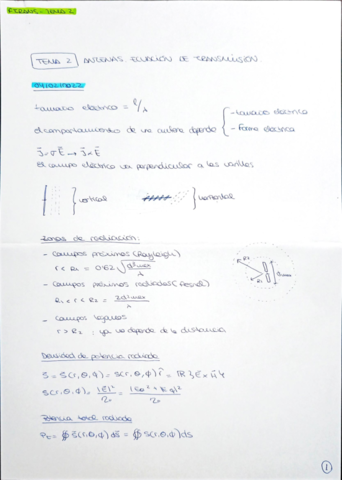 TEMA 2
TEMA 2 ANTENAS ECUACIÓN DE TRANSMISIÓN
tamaño eléctrico = l/λ
el comportamiento de una antena depende { - tamaño eléctrico
- Forma eléctrica
J = σE → J ∝ E
El campo eléctrico va perpendicular a las varillas
} vertical } horizontal
Zonas de radiación:
- Campos próximos (Rayleigh)
r < R1 = 0.62 √(d³max/λ)
- Campos próximos radiados (Fresnel)
R1 < r < R2 = 2d²max/λ
- Campos lejanos
r > R2 ; ya no depende de la distancia
Densidad de potencia radiada
S = S(r,θ,φ) = S(r,θ,φ) r̂ = Re{E × H*}
S(r,θ,φ) = |E|²/Z₀ = |Eθ² + Eφ|²/Z₀
Potencia total radiada
Pt = ∯ S(r,θ,φ) ds = ∯ S(r,θ,φ) ds
1